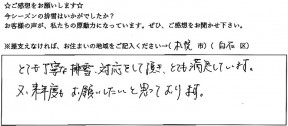 ☆ご感想をお願いします☆
今シーズンの除雪はいかがでしたか?
お客様の声が、私たちの原動力になっています。ぜひ、ご感想をお聞かせ下さい。
※差支えなければ、お住まいの地域をご記入ください→(札幌 市)(白石 区)
とても丁寧な除雪、対応をして頂き、とても満足しています。
又、来年度もお願いしたいと思っております。